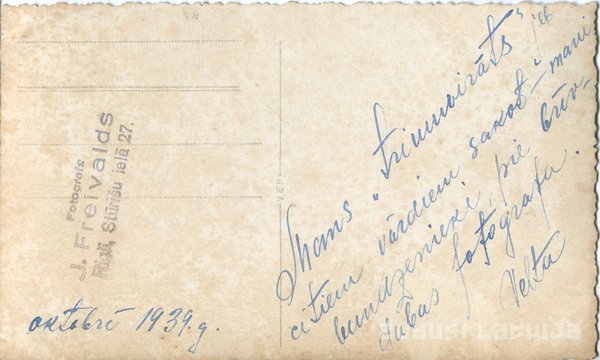 Fotografs
J. Freivalds
Rīgā, Stūrīšu ielā 27.
oktobrī 1939.g.
Mans "Triumvirāts"
citiem vārdiem sakot – mani
kundzenieki, pie
dabas fotografa.
Velta